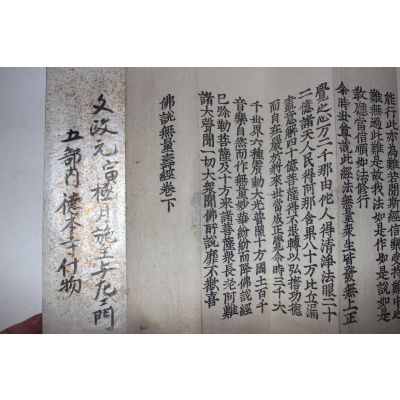 能行此亦為難若聞斯經信樂受持難中之
難無過此難是故我法如是作如是說如是
教應當信順如法修行
尒時世尊說此經法無量眾生皆發無上正
覺之心万二千那由他人得清淨法眼二十
二億諸天人民得阿那含果八十万比丘漏
盡意解四十億菩薩得不退轉以弘誓功德
而自莊嚴於將來世當成正覺尒時三千大
千世界六種震動大光普照十方國土百千
音樂自然而作無量妙華紛紛而降佛說經
已弥勒菩薩及十方來諸菩薩眾長老阿難
諸大聲聞一切大眾聞佛所說靡不歡喜
佛說無量壽經卷下
文政元寅極月施主
五部內德本寺付物